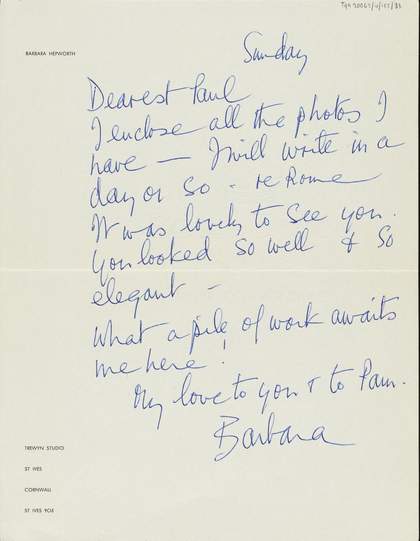 BARBARA HEPWORTH
Sunday
Dearest Paul
I enclose all the photos I
have — I will write in a
day or so - re Rome
It was lovely to see you.
You looked so well & so
elegant -
What a pile of work awaits
me here!
My love to you & to Pam.
Barbara
TREWYN STUDIO
ST IVES
CORNWALL
ST IVES 905